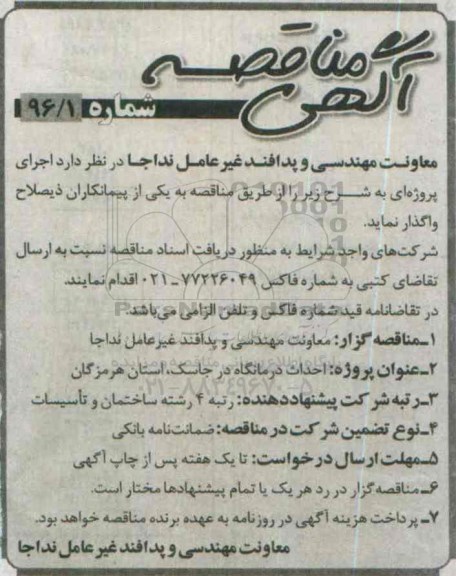 آگهی مناقصه
شماره ۹۶/۱
معاونت مهندسی و پدافند غیر عامل نداجا در نظر دارد اجرای
پروژه‌ای به شرح زیر را از طریق مناقصه به یکی از پیمانکاران ذیصلاح
واگذار نماید.
شرکت‌های واجد شرایط به منظور دریافت اسناد مناقصه نسبت به ارسال
تقاضای کتبی به شماره فاکس ۷۷۲۲۶۰۴۹ ـ ۰۲۱ اقدام نمایند.
در تقاضانامه قید شماره فاکس و تلفن الزامی می‌باشد.
۱ـ مناقصه گزار: معاونت مهندسی و پدافند غیرعامل نداجا
۲ـ عنوان پروژه: احداث درمانگاه در جاسک، استان هرمزگان
۳ـ رتبه شرکت پیشنهاددهنده: رتبه ۴ رشته ساختمان و تأسیسات
۴ـ نوع تضمین شرکت در مناقصه: ضمانت‌نامه بانکی
۵ـ مهلت ارسال درخواست: تا یک هفته پس از چاپ آگهی
۶ـ مناقصه‌گزار در رد هر یک یا تمام پیشنهادها مختار است.
۷ـ پرداخت هزینه آگهی در روزنامه به عهده برنده مناقصه خواهد بود.
معاونت مهندسی و پدافند غیر عامل نداجا